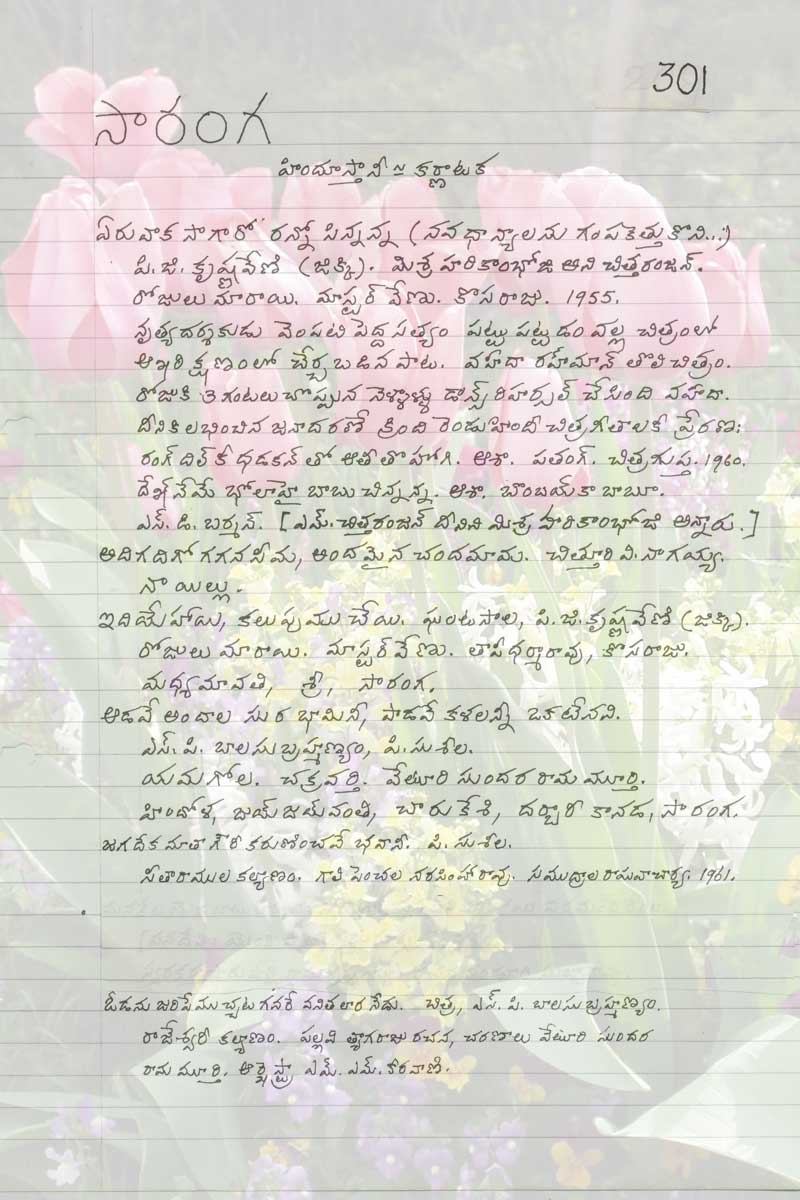 301
సారంగ
హిందూస్తానీ ≃ కర్ణాటక
ఏరువాక సాగారో రన్నో చిన్నన్న (నవధాన్యాలను గంపకెత్తుకొని...)
పి.జి. కృష్ణవేణి (జిక్కి). మిశ్ర హరికాంభోజి అని చిత్తరంజన్.
రోజులు మారాయి. మాస్టర్ వేణు. కొసరాజు. 1955.
నృత్యదర్శకుడు వెంపటి పెద్ద సత్యం పట్టు పట్టడం వల్ల చిత్రంలో
ఆఖరి క్షణంలో చేర్చబడిన పాట. వహీదా రహ్మాన్ తొలి చిత్రం.
రోజుకి 3 గంటలు చొప్పున నెళ్ళాళ్ళు డాన్స్ రిహర్సల్ చేసింది వహీదా.
దీనికి లభించిన జనాదరణే క్రింది రెండు హిందీ చిత్రగీతాలకి ప్రేరణ:
రంగ్ దిల్ కీ ధడకన్ తో ఆతీ తొ హోగి. ఆశా. పతంగ్. చిత్రగుప్త. 1960.
దేఖ్ నేమే భోలాహై బాబు చిన్నన్న. ఆశా. బొంబయ్ కా బాబూ.
ఎస్. డి. బర్మన్. [ఎమ్. చిత్తరంజన్ దీనిని మిశ్ర హరికాంభోజి అన్నారు.]
అదిగదిగో గగనసీమ, అందమైన చందమామ. చిత్తూరి వి. నాగయ్య.
నా యిల్లు.
ఇదియే హాయి, కలుపుము చేయి. ఘంటసాల, పి.జి. కృష్ణవేణి (జిక్కి).
రోజులు మారాయి. మాస్టర్ వేణు. తాపీ ధర్మారావు, కొసరాజు.
మధ్యమావతి, శ్రీ, సారంగ.
ఆడవే అందాల సుర భామినీ, పాడవే కళలన్నీ ఒకటేనని.
ఎస్. పి. బాలసుబ్రహ్మణ్యం, పి. సుశీల.
యమగోల. చక్రవర్తి. వేటూరి సుందర రామ మూర్తి.
హిందోళ, జయ్ జయ్ వంతి, చారుకేశి, దర్బారీ కానడ, సారంగ.
జగదేక మాతా గౌరీ కరుణించవే భవానీ. పి. సుశీల.
సీతారాముల కల్యాణం. గాలి పెంచల నరసింహారావు. సముద్రాల రాఘవాచార్య. 1961.
ఓడను జరిపే ముచ్చట గనరే వనితలార నేడు. చిత్ర, ఎస్. పి. బాలసుబ్రహ్మణ్యం.
రాజేశ్వరీ కల్యాణం. పల్లవి త్యాగరాజు రచన, చరణాలు వేటూరి సుందర
రామ మూర్తి. ఆర్కెస్ట్రా ఎమ్. ఎమ్. కీరవాణి.